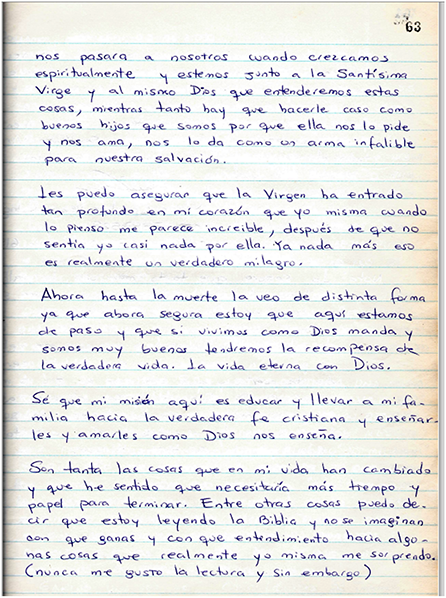 63
nos pasara a nosotros cuando crezcamos
espiritualmente y estemos junto a la Santísima
Virge y al mismo Dios que entenderemos estas
cosas, mientras tanto hay que hacerle caso como
buenos hijos que somos por que ella nos lo pide
y nos ama, nos lo da como un arma infalible
para nuestra salvación.
Les puedo asegurar que la Virgen ha entrado
tan profundo en mi corazón que yo misma cuando
lo pienso me parece increible, después de que no
sentia yo casi nada por ella. Ya nada más eso
es realmente un verdadero milagro.
Ahora hasta la muerte la veo de distinta forma
ya que ahora segura estoy que aquí estamos
de paso y que si vivimos como Dios manda y
somos muy buenos tendremos la recompensa de
la verdadera vida. La vida eterna con Dios.
Sé que mi misión aquí es educar y llevar a mi fa-
milia hacia la verdadera fe cristiana y enseñar-
les y amarles como Dios nos enseña.
Son tanta las cosas que en mi vida han cambiado
y que he sentido que necesitaría más tiempo y
papel para terminar. Entre otras cosas puedo de-
cir que estoy leyendo la Biblia y no se imaginan
con que ganas y con que entendimiento hacia algu-
nas cosas que realmente yo misma me sorprendo.
(nunca me gusto la lectura y sin embargo)